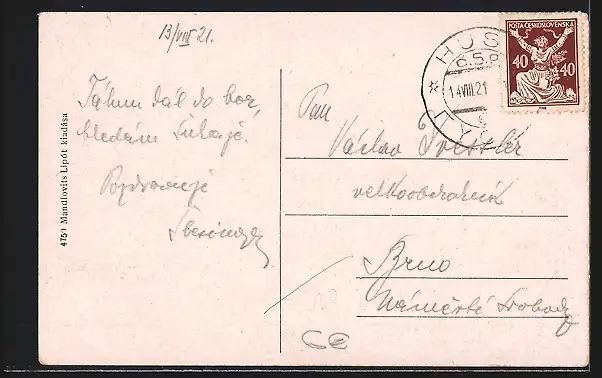 13/VIII 21.
Táhnu dál do hor,
hledám
Pozdravuje
4759 Mandlovits Lipót kiadása
POŠTA ČESKOSLOVENSKÁ
40 40
HUS
Č.S.P.
14 VIII 21
Pan
Václav
velkoobchodník
Brno
Náměstí Svobody